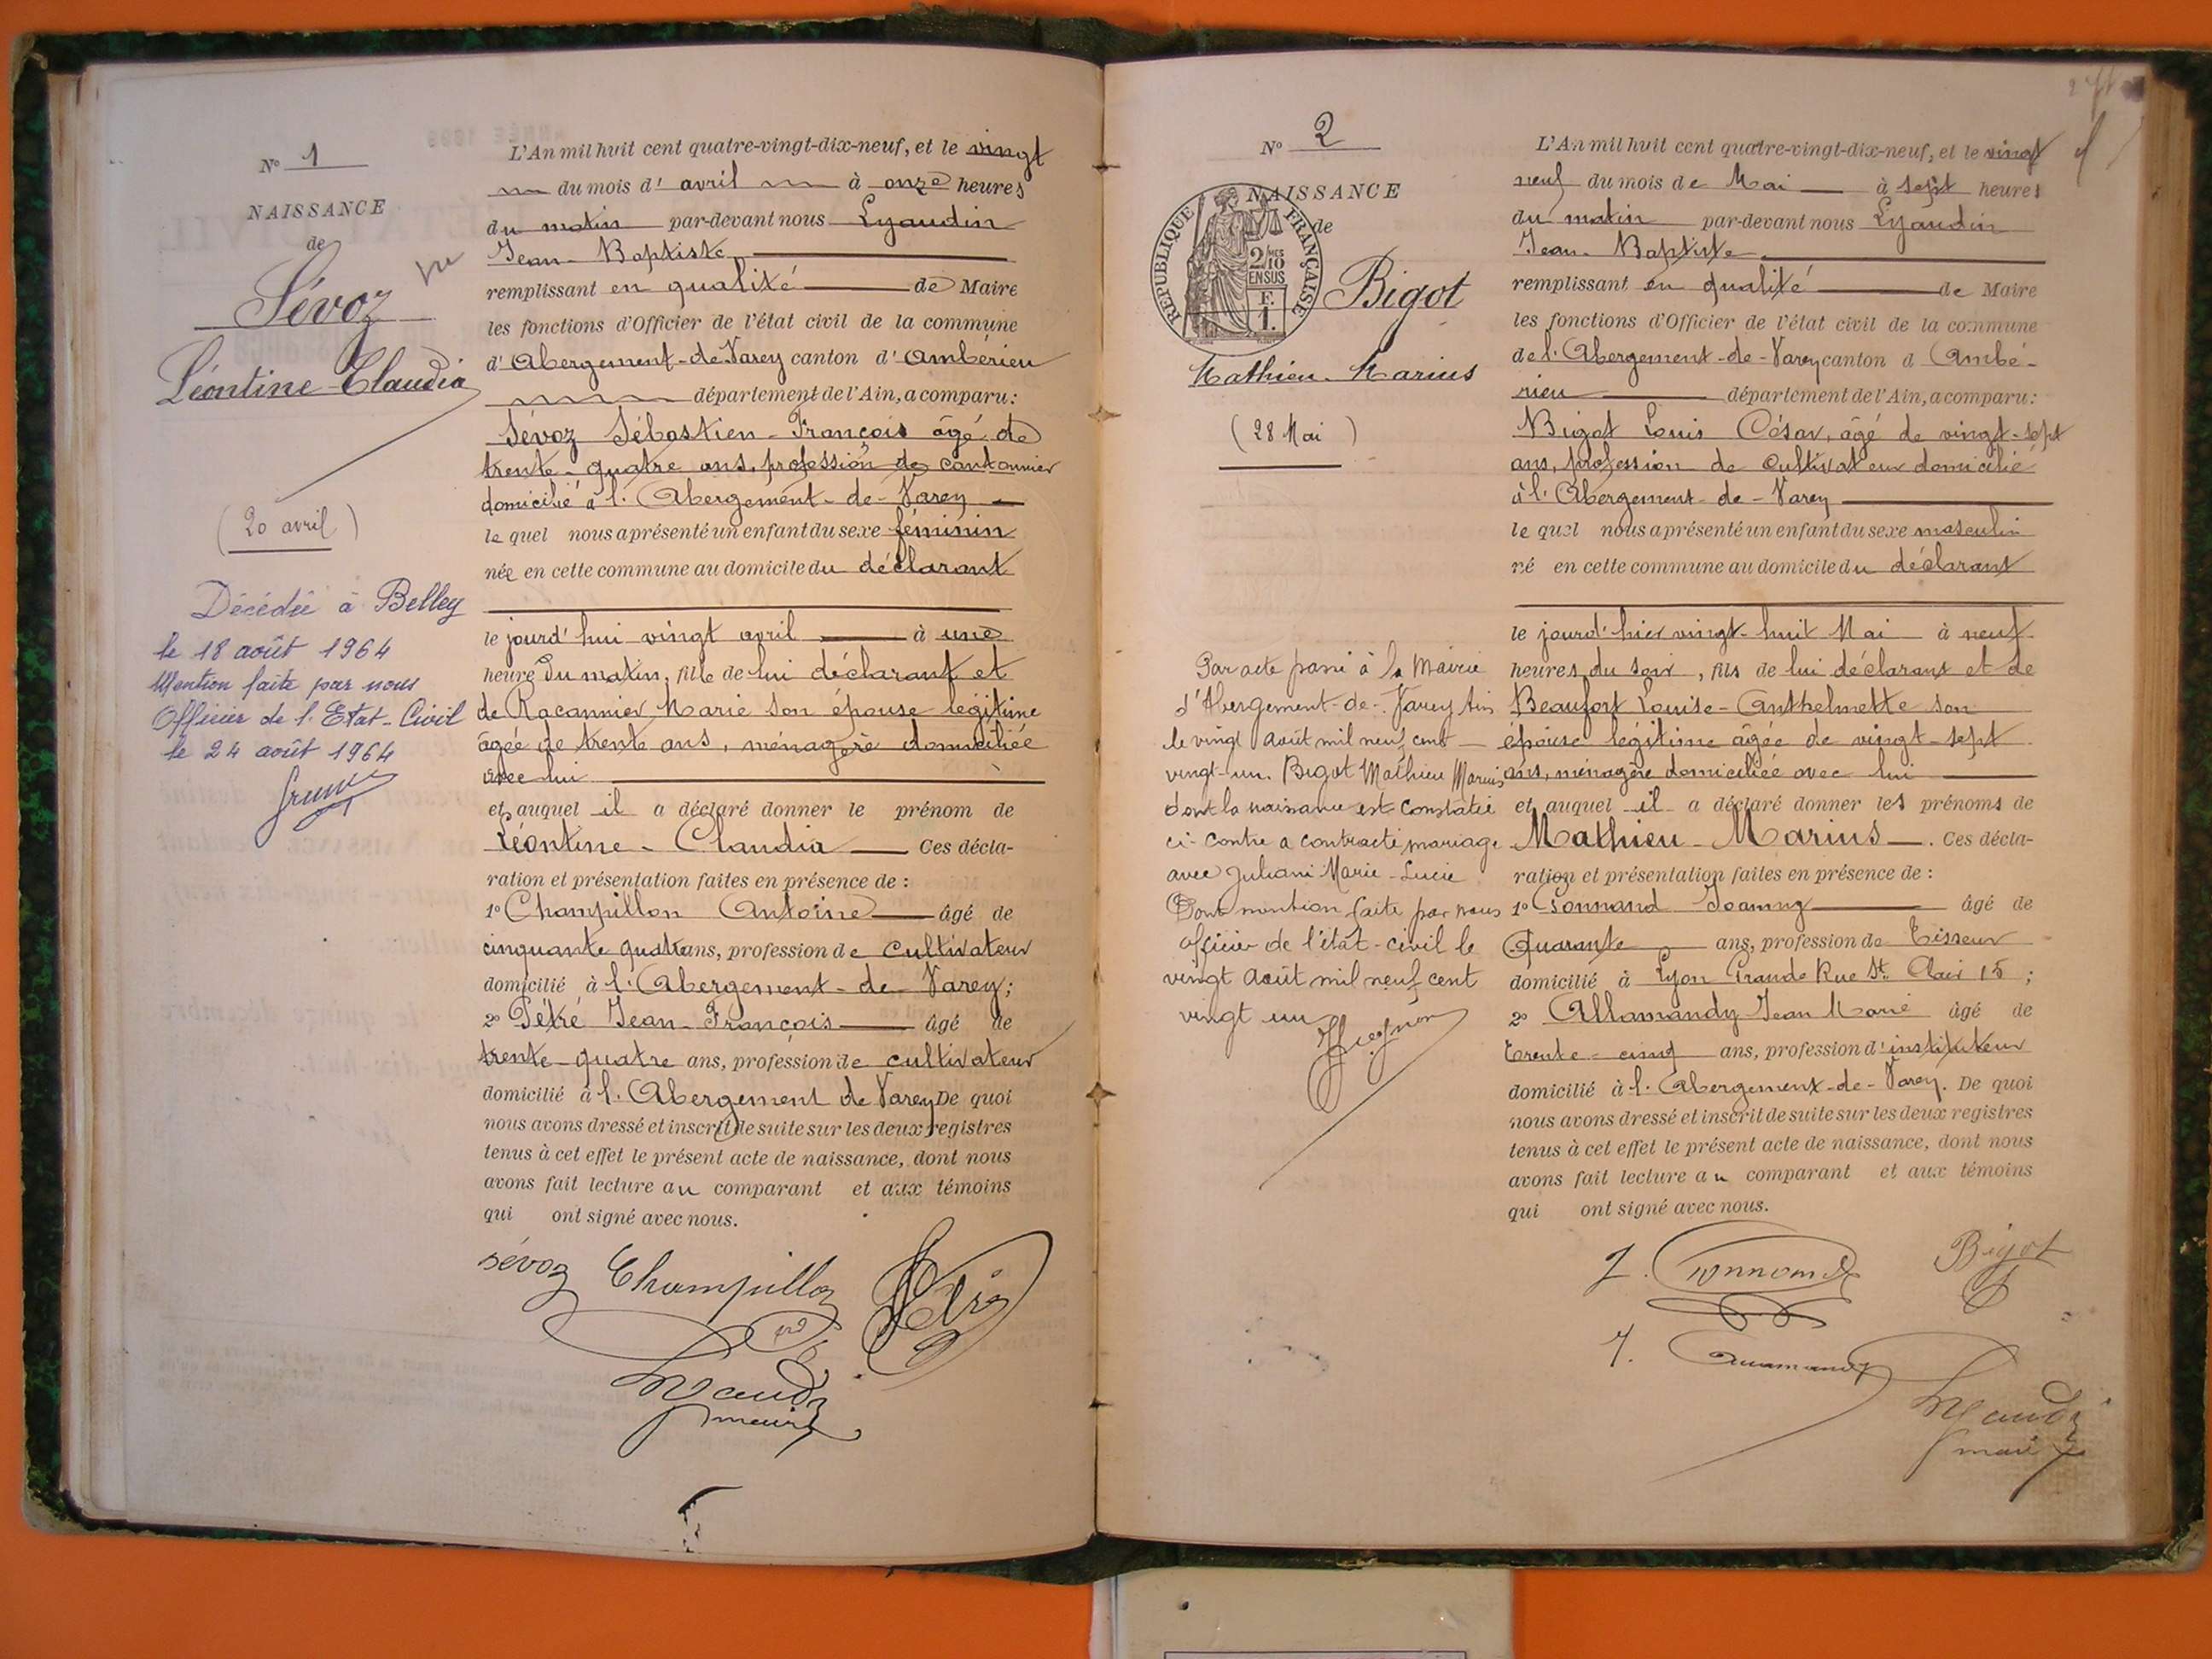 N° 1
NAISSANCE
de
Sévoz
Léontine-Claudia
(20 avril)
Décédée à Belley
le 18 août 1964
Mention faite par nous
Officier de l'Etat-Civil
le 24 août 1964
L'An mil huit cent quatre-vingt-dix-neuf, et le vingt
du mois d'avril à onze heures
du matin par-devant nous Lyaudin
Jean-Baptiste
remplissant en qualité de Maire
les fonctions d'Officier de l'état civil de la commune
d'Abergement-de-Varey canton d'Ambérieu
département de l'Ain, a comparu:
Sévoz Sébastien-François âgé de
trente-quatre ans, profession de cantonnier
domicilié à l'Abergement-de-Varey
le quel nous a présenté un enfant du sexe féminin
née en cette commune au domicile du déclarant
le jourd'hui vingt avril à une
heure du matin, fille de lui déclarant et
de Racannier Marie son épouse légitime
âgée de trente ans, ménagère domiciliée
avec lui
et auquel il a déclaré donner le prénom de
Léontine-Claudia Ces décla-
ration et présentation faites en présence de :
1° Champillon Antoine âgé de
cinquante quatre ans, profession de cultivateur
domicilié à l'Abergement-de-Varey;
2° Pétré Jean-François âgé de
trente-quatre ans, profession de cultivateur
domicilié à l'Abergement de Varey De quoi
nous avons dressé et inscrit de suite sur les deux registres
tenus à cet effet le présent acte de naissance, dont nous
avons fait lecture au comparant et aux témoins
qui ont signé avec nous.
Sévoz Champillon
maire
N° 2
NAISSANCE
de
REPUBLIQUE FRANÇAISE
2/10 EN SUS
F.
1.
Bigot
Mathieu-Marius
(28 Mai)
Par acte passé à la Mairie
d'Abergement-de-Varey Ain
le vingt août mil neuf cent
vingt-un. Bigot Mathieu Marius
dont la naissance est constatée
ci-contre a contracté mariage
avec Juliani Marie-Lucie
Dont mention faite par nous
officier de l'état-civil le
vingt août mil neuf cent
vingt un
L'An mil huit cent quatre-vingt-dix-neuf, et le vingt
neuf du mois de Mai à sept heures
du matin par-devant nous Lyaudin
Jean-Baptiste
remplissant en qualité de Maire
les fonctions d'Officier de l'état civil de la commune
de l'Abergement-de-Varey canton d'Ambé-
rieu département de l'Ain, a comparu:
Bigot Louis César, âgé de vingt-sept
ans, profession de cultivateur domicilié
à l'Abergement-de-Varey
le quel nous a présenté un enfant du sexe masculin
né en cette commune au domicile du déclarant
le jourd'hier vingt-huit Mai à neuf
heures du soir, fils de lui déclarant et de
Beaufort Louise-Anthelmette son
épouse légitime âgée de vingt-sept
ans, ménagère domiciliée avec lui
et auquel il a déclaré donner les prénoms de
Mathieu-Marius. Ces décla-
ration et présentation faites en présence de :
1° Gonnand Joanny âgé de
Quarante ans, profession de Tisseur
domicilié à Lyon Grande Rue St. Clair 15 ;
2° Allamandy Jean Marie âgé de
Trente-cinq ans, profession d'instituteur
domicilié à l'Abergement-de-Varey. De quoi
nous avons dressé et inscrit de suite sur les deux registres
tenus à cet effet le présent acte de naissance, dont nous
avons fait lecture au comparant et aux témoins
qui ont signé avec nous.
J. Gonnand Bigot